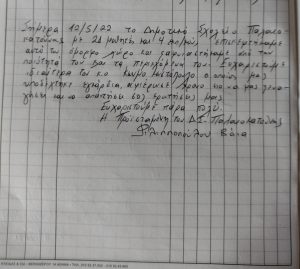 Σήμερα 12/5/22 το Δημοτικό Σχολείο Παλαιο
κατούνας με 21 μαθητές και 4 επισκεφτήκαμε
αυτό το όμορφο χώρο και από την
ποιότητα του και τα περιεχόμενα του. Ευχαριστούμε
ιδιαίτερα τον κ.ο ο οποίος μας
υποδέχτηκε εγκάρδια, αφιέρωσε χρόνο για να μας ξενα-
γήσει και να απαντήσει στις ερωτήσεις μας
Ευχαριστούμε πάρα πολύ.
Η Προϊσταμένη του Δ.Σ. Παλαιοκατούνας
Φιλιπποπούλου Βάια